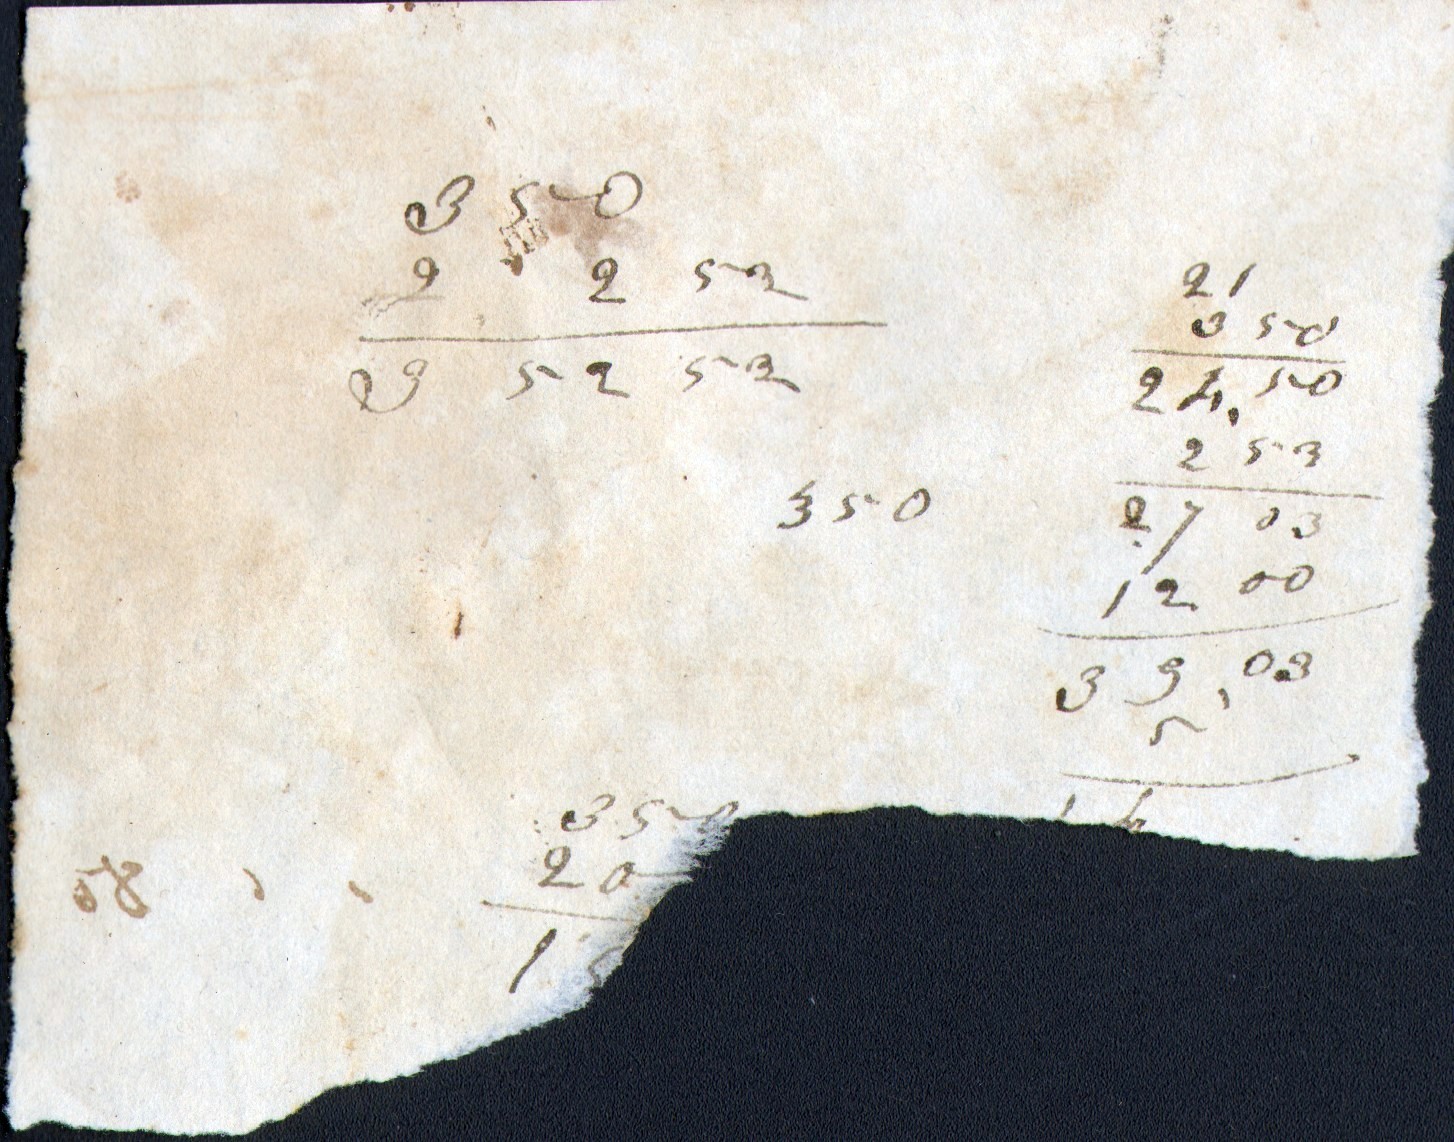 3 50
2 2 53
3 52 53
21
3 50
24.50
2 53
27 03
12 00
39.03
5
14
350
350
20
15
58